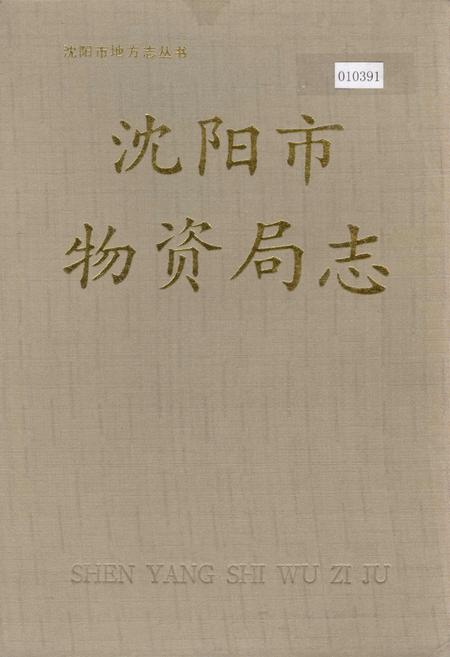 沈阳市地方志丛书
010391
沈阳市
物资局志
SHEN YANG SHI WU ZI JU